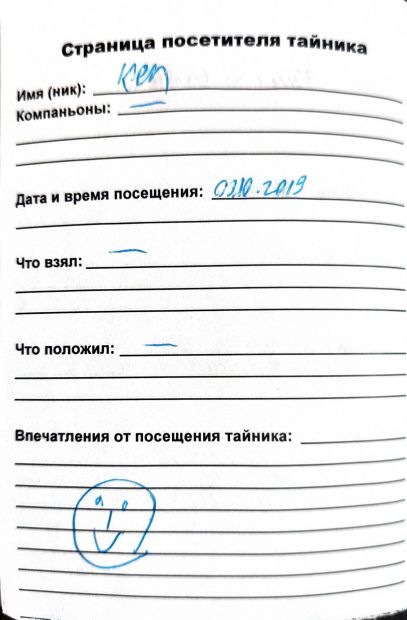 Страница посетителя тайника
Имя (ник): Кеп
Компаньоны: —
Дата и время посещения: 03.10.2019
Что взял: —
Что положил: —
Впечатления от посещения тайника: